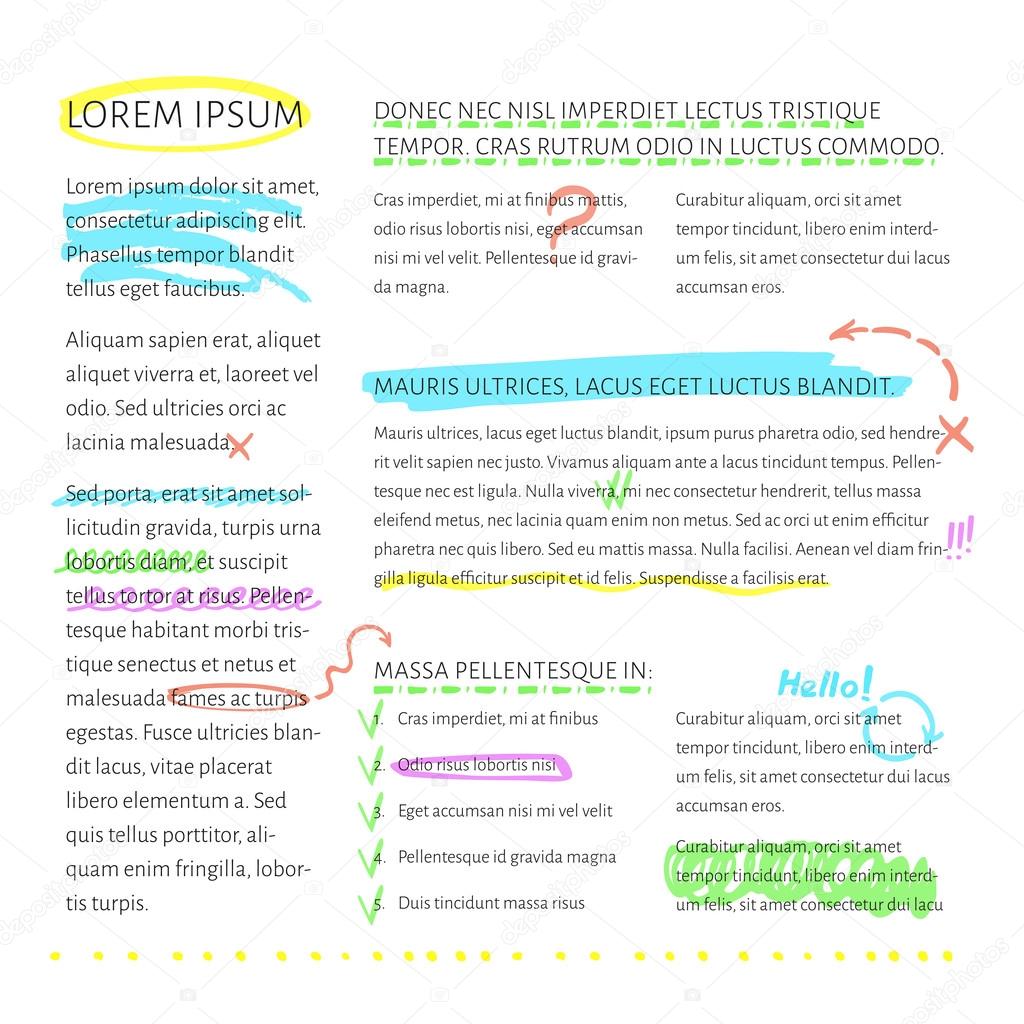 LOREM IPSUM
Lorem ipsum dolor sit amet,
consectetur adipiscing elit.
Phasellus tempor blandit
tellus eget faucibus.
Aliquam sapien erat, aliquet
aliquet viverra et, laoreet vel
odio. Sed ultricies orci ac
lacinia malesuada.
Sed porta, erat sit amet sol-
licitudin gravida, turpis urna
lobortis diam, et suscipit
tellus tortor at risus. Pellen-
tesque habitant morbi tris-
tique senectus et netus et
malesuada fames ac turpis
egestas. Fusce ultricies blan-
dit lacus, vitae placerat
libero elementum a. Sed
quis tellus porttitor, ali-
quam enim fringilla, lobor-
tis turpis.
DONEC NEC NISL IMPERDIET LECTUS TRISTIQUE
TEMPOR. CRAS RUTRUM ODIO IN LUCTUS COMMODO.
Cras imperdiet, mi at finibus mattis,
odio risus lobortis nisi, eget accumsan
nisi mi vel velit. Pellentesque id gravi-
da magna.
?
Curabitur aliquam, orci sit amet
tempor tincidunt, libero enim interd-
um felis, sit amet consectetur dui lacus
accumsan eros.
MAURIS ULTRICES, LACUS EGET LUCTUS BLANDIT.
Mauris ultrices, lacus eget luctus blandit, ipsum purus pharetra odio, sed hendre-
rit velit sapien nec justo. Vivamus aliquam ante a lacus tincidunt tempus. Pellen-
tesque nec est ligula. Nulla viverra, mi nec consectetur hendrerit, tellus massa
eleifend metus, nec lacinia quam enim non metus. Sed ac orci ut enim efficitur
pharetra nec quis libero. Sed eu mattis massa. Nulla facilisi. Aenean vel diam frin-
gilla ligula efficitur suscipit et id felis. Suspendisse a facilisis erat.
!!!
MASSA PELLENTESQUE IN:
1. Cras imperdiet, mi at finibus
2. Odio risus lobortis nisi
3. Eget accumsan nisi mi vel velit
4. Pellentesque id gravida magna
5. Duis tincidunt massa risus
Hello!
Curabitur aliquam, orci sit amet
tempor tincidunt, libero enim interd-
um felis, sit amet consectetur dui lacus
accumsan eros.
Curabitur aliquam, orci sit amet
tempor tincidunt, libero enim interd-
um felis, sit amet consectetur dui lacu